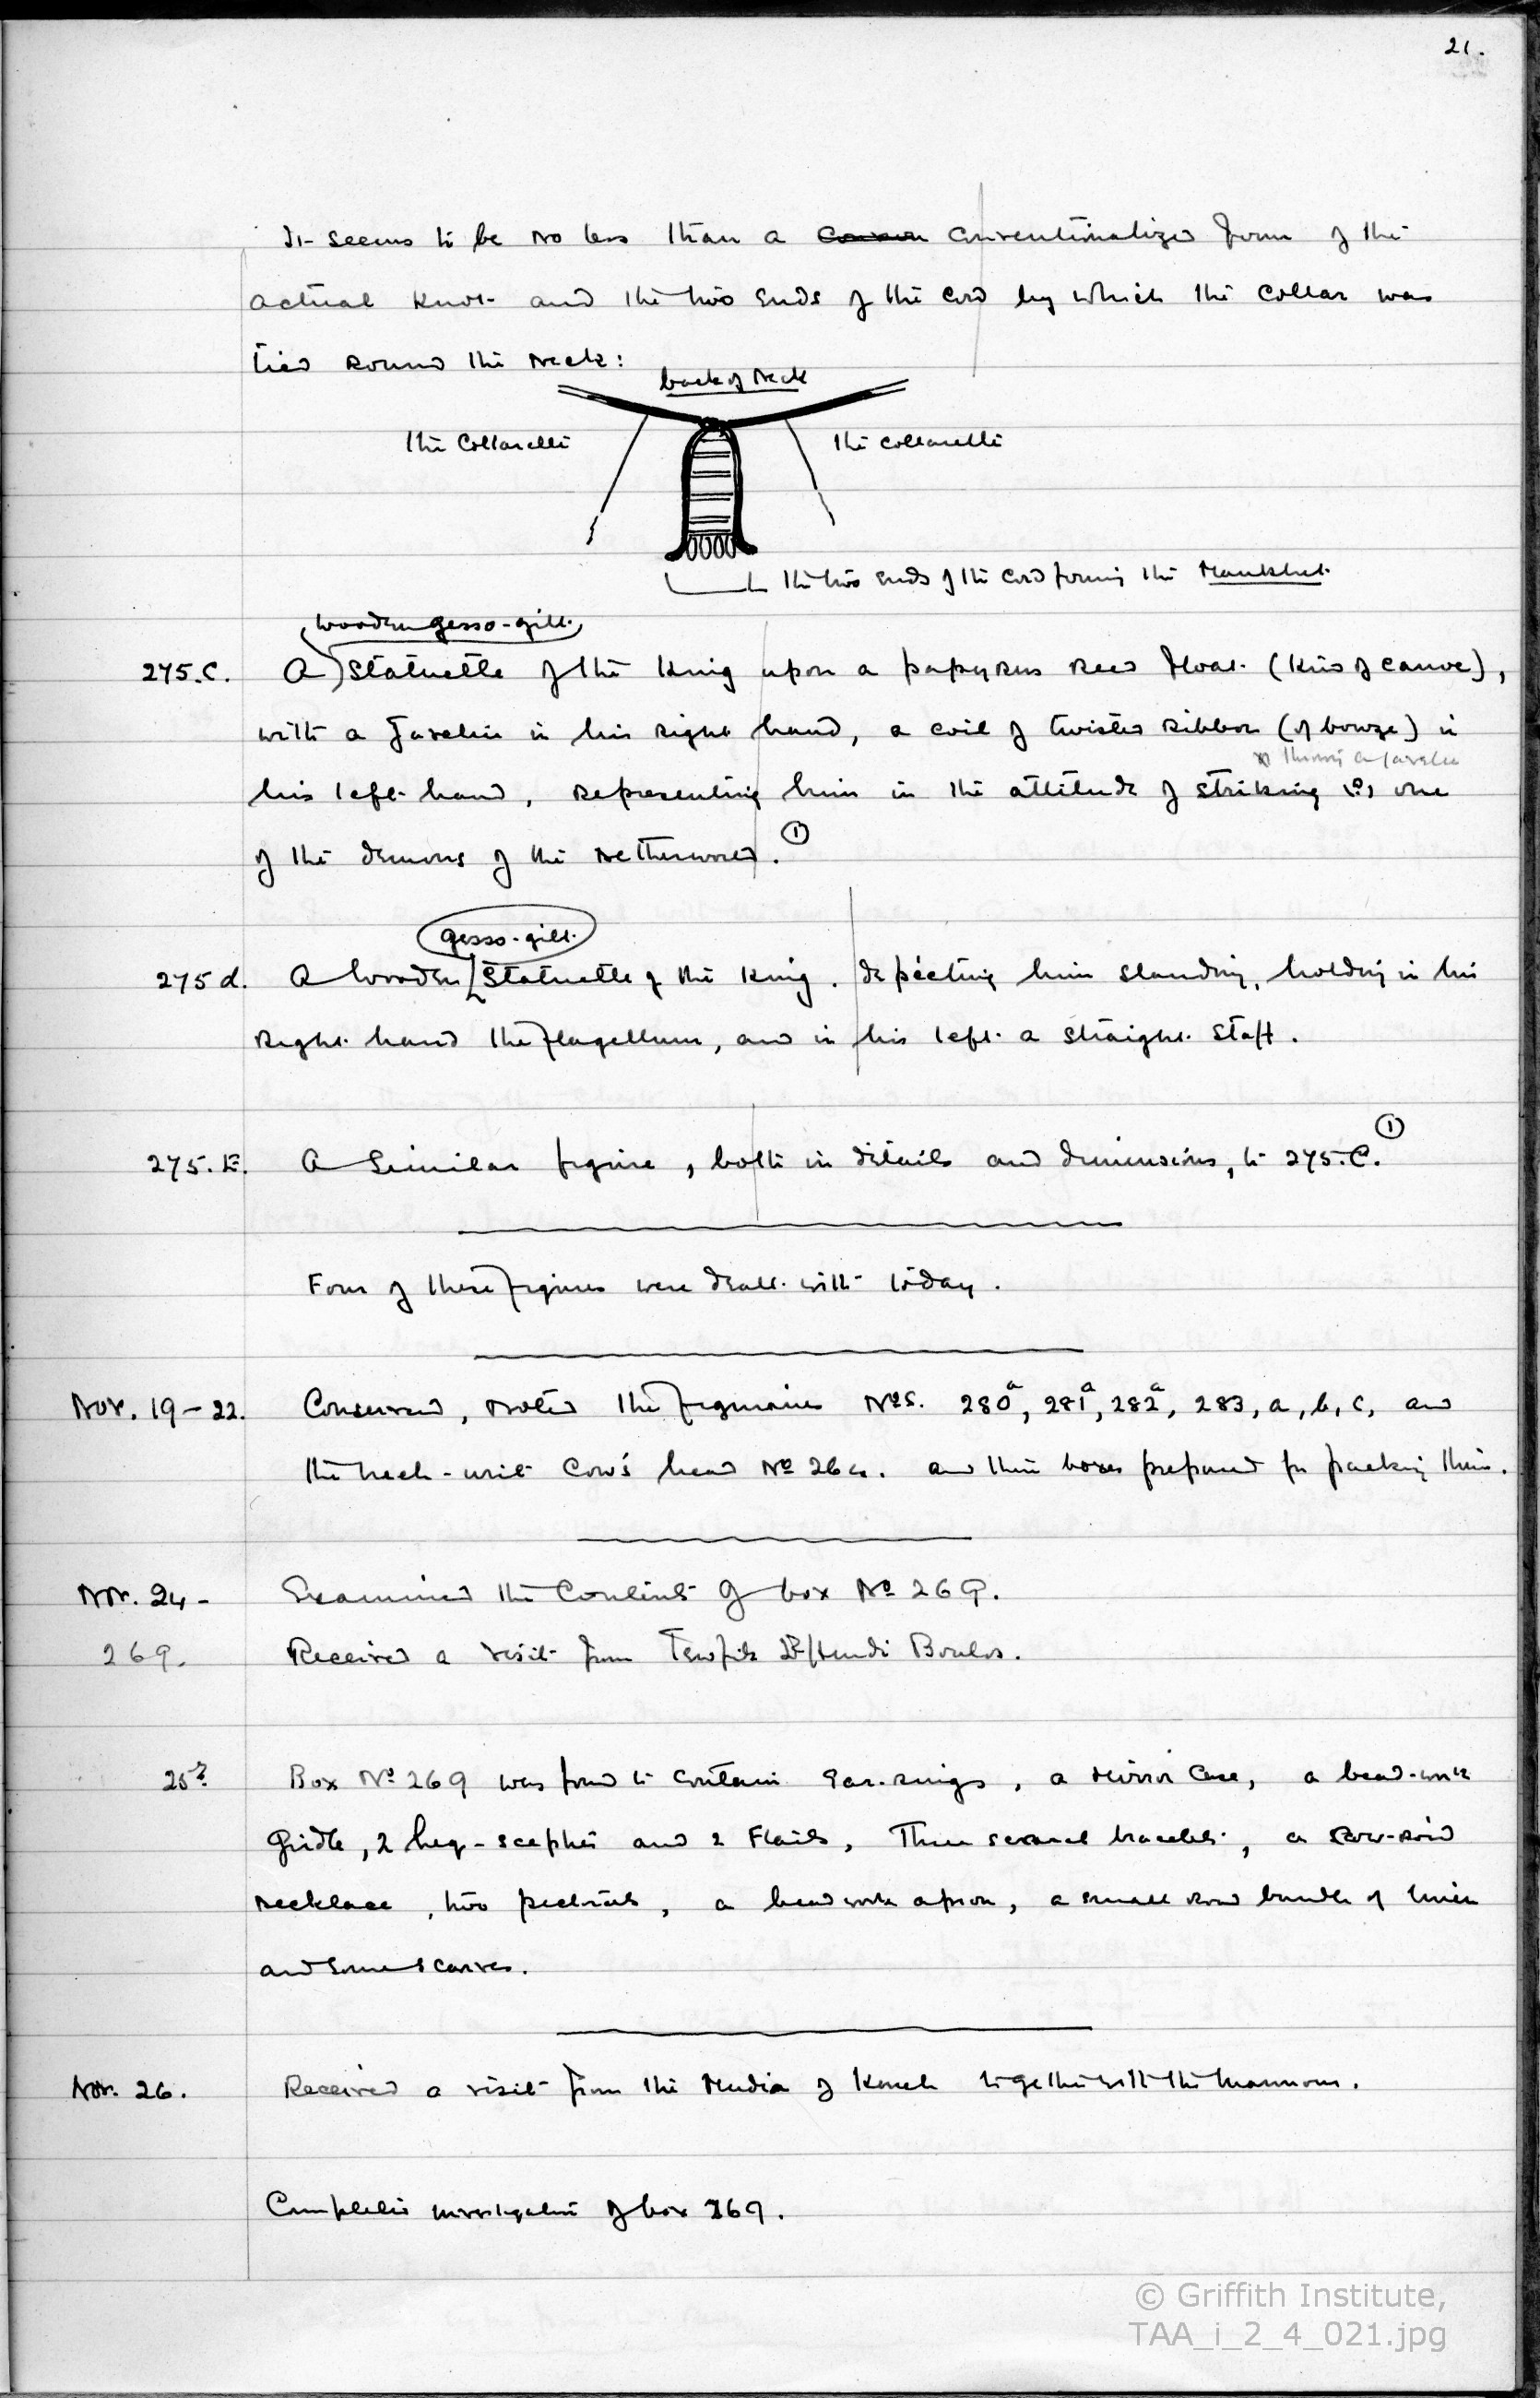 21.
It seems to be no less than a conventionalized form of the
actual knot and the two ends of the cord by which the collar was
tied round the neck:
back of neck
the Collarette the collarette
the two ends of the cord forming the Mankhet.
wooden gesso-gilt
275.C. A statuette of the King upon a papyrus reed float (kind of canoe),
with a javelin in his right hand, a coil of twisted ribbon (of bronze) in
throwing a javelin
his left hand, representing him in the attitude of striking at one
of the demons of the Netherworld. ①
gesso-gilt
275 d. A wooden statuette of the King, depicting him standing, holding in his
right hand the flagellum, and in his left a straight staff.
275.E. A similar figure, both in details and dimensions, to 275.C. ①
Four of these figures were dealt with today.
Nov. 19-22. Conserved, noted the figures Nos. 280a, 281a, 282a, 283, a, b, c, and
the cow's head No 264. and their boxes prepared for packing them.
Nov. 24 - Examined the contents of box No 269.
269. Received a visit from Tewfik Effendi Boulos.
25? Box No 269 was found to contain ear-rings, a mirror case, a bead-work
girdle, 2 heq-sceptres and 2 flails, Three several bracelets, a
necklace, two pectorals, a bead work apron, a small bundle of linen
and some scarves.
Nov. 26. Received a visit from the Mudir of Keneh together with the Mamour.
Completed investigation of box 269.
© Griffith Institute,
TAA_i_2_4_021.jpg